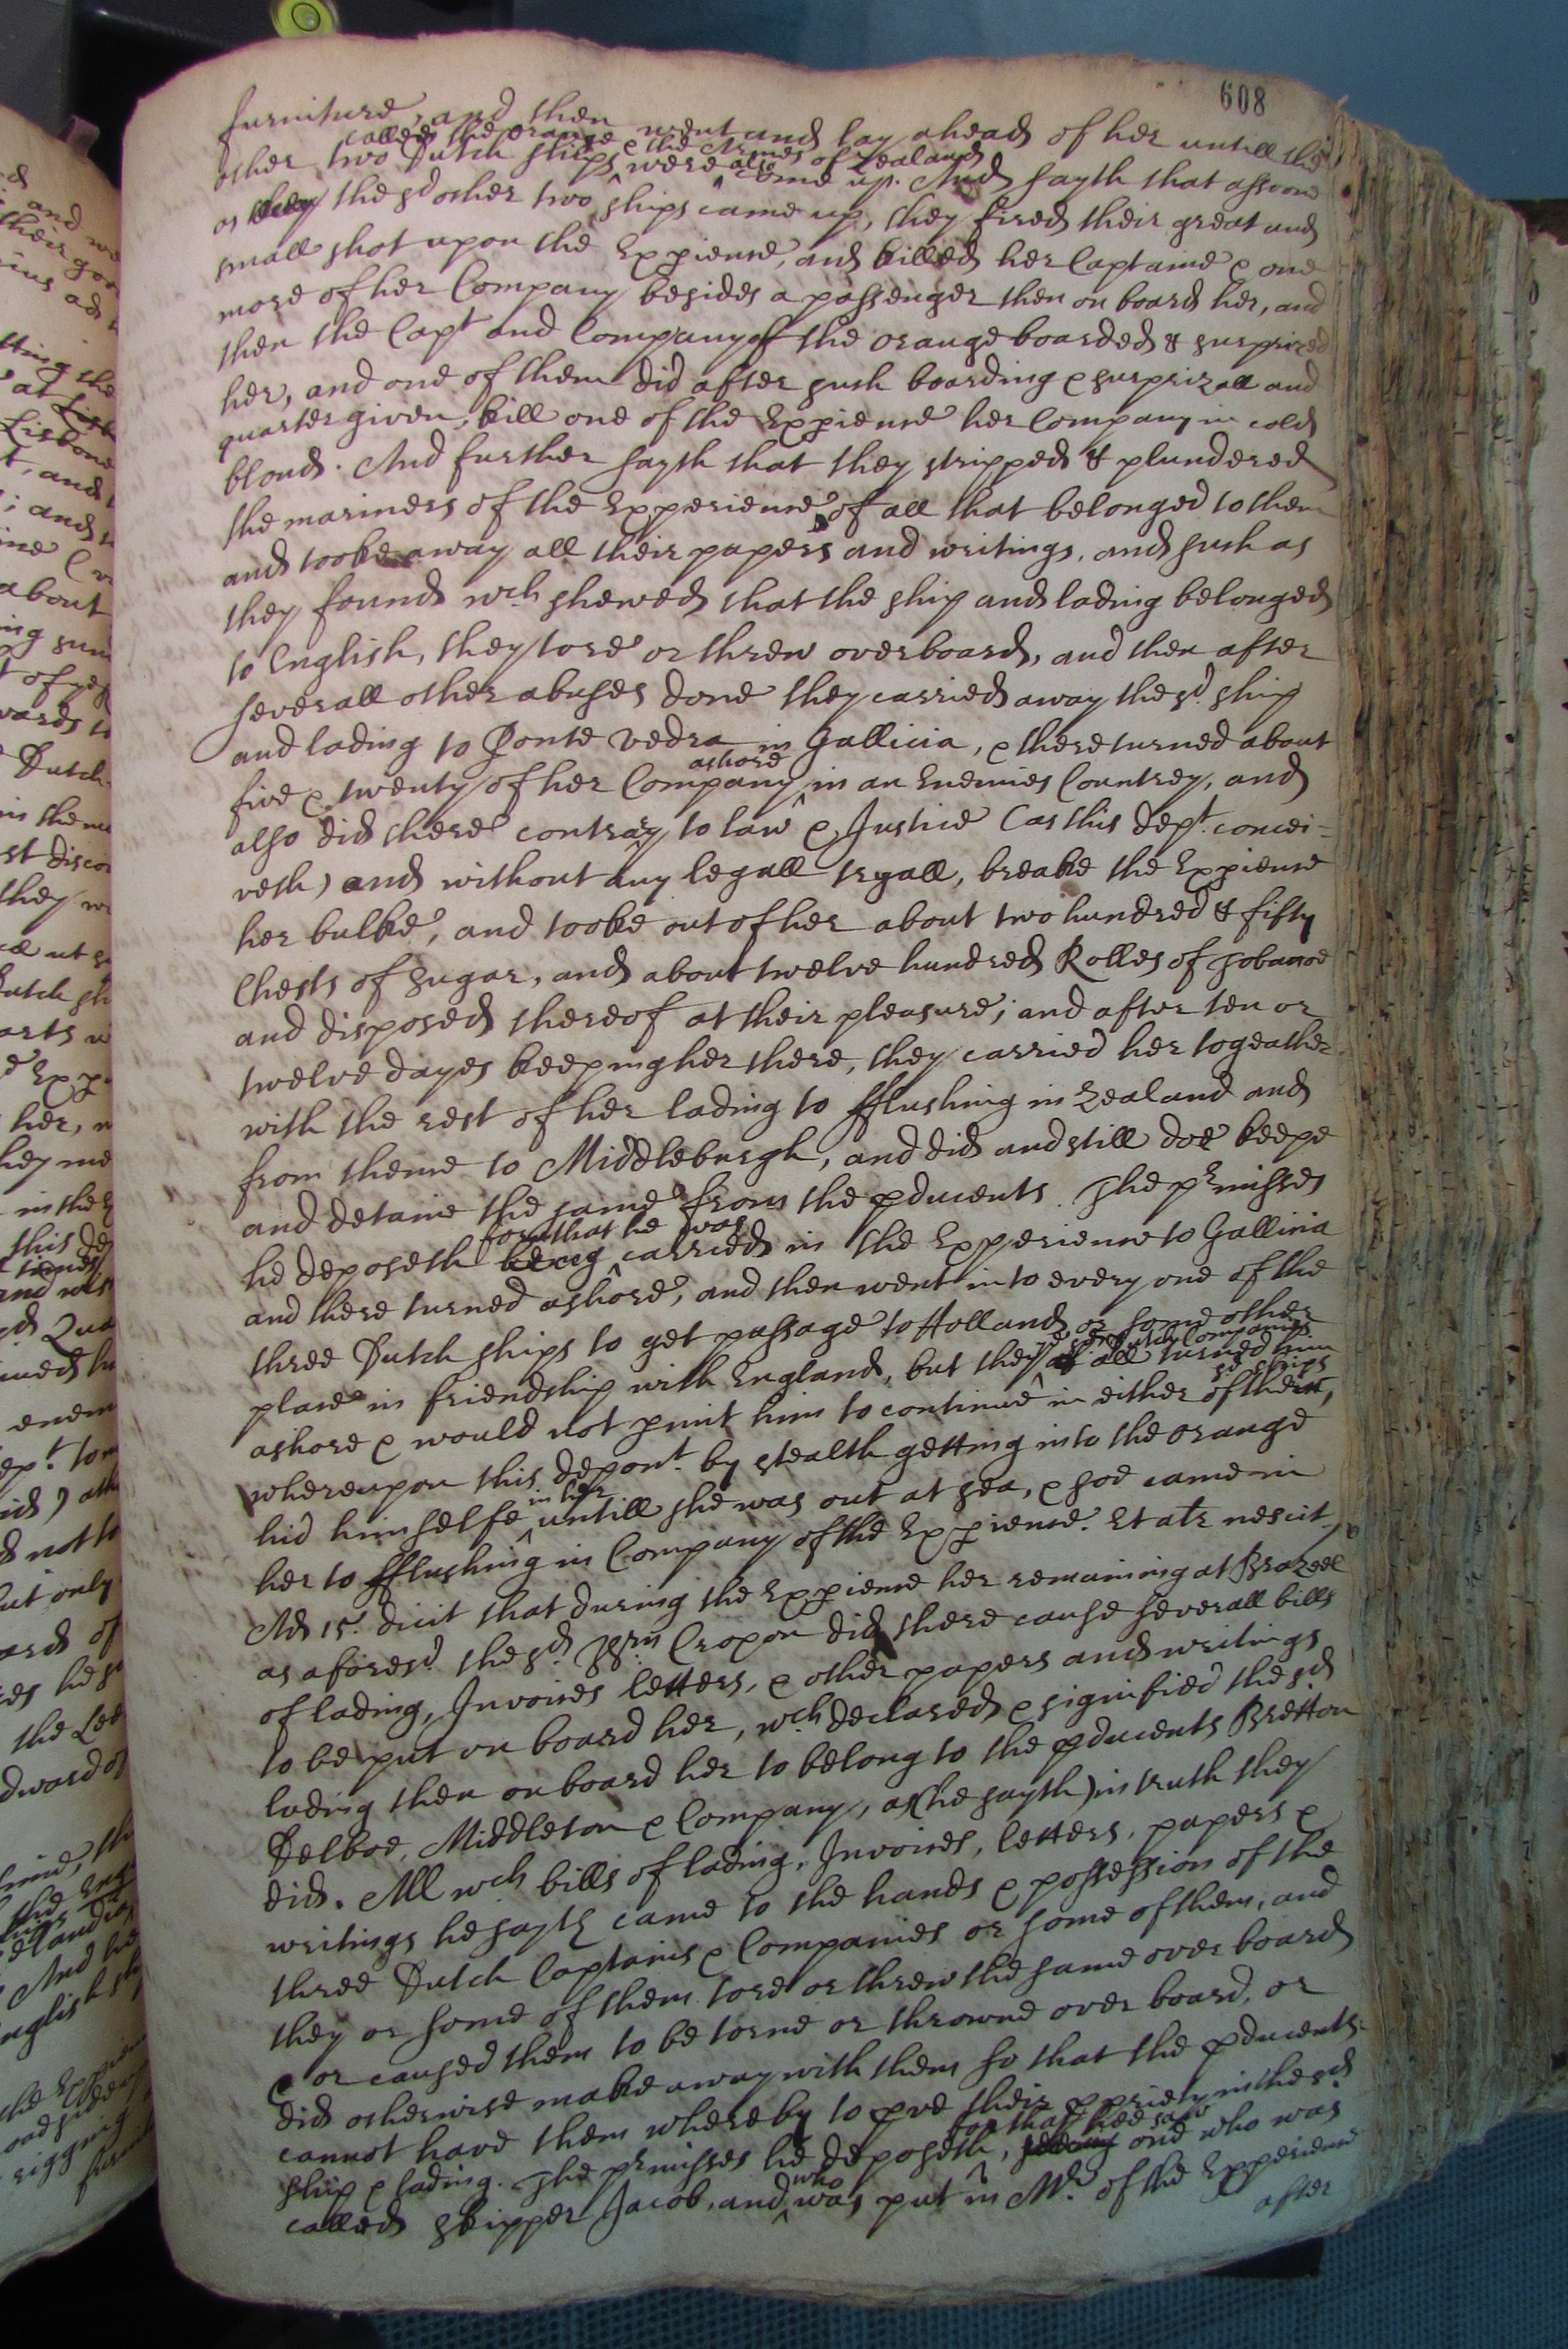 608
furniture, and then went and lay ahead of her untill the
called the Orange & the Armes of Zealand
other two Dutch ships were also come up. And sayth that assoone
as they the sd other two ships came up, they fired their great and
small shot upon the Expience, and killed her Captaine & one
more of her Company besides a passenger then on board her, and
then the Capt and Company of the Orange boarded & surprized
her, and one of them did after such boarding & surprizall and
quarter given, kill one of the Expience her Company in cold
bloud. And further sayth that they stripped & plundered
the mariners of the Experience of all that belonged to them
and tooke away all their papers and writings, and such as
they found wch shewed that the ship and lading belonged
to English, they tore or threw overboard, and then after
severall other abuses done they carried away the sd ship
and lading to Ponte vedra in Gallicia, & there turned about
five & twenty of her Company ashore in an Enemies Countrey, and
also did there contrary to law & Justice (as this dept. concei=
veth) and without any legall tryall, breake the Expience
her bulke, and tooke out of her about two hundred & fifty
Chests of sugar, and about twelve hundred Rolles of tobaccoe
and disposed thereof at their pleasure; and after ten or
twelve dayes keeping her there, they carried her togeather
with the rest of her lading to fflushing in Zealand and
from thence to Middleburgh, and did and still doe keepe
and detaine the same from the pducents. The prmisses
he deposeth being for that he was carried in the Experience to Gallicia
and there turned ashore, and then went into every one of the
three Dutch ships to get passage to Holland or some other
place in friendship with England, but they all turned him
ashore & would not pmit him to continue in either of their sd ships,
whereupon this depont. by stealth getting into the Orange
hid himselfe in her untill she was out at sea, & soe came in
her to fflushing in Company of the Expience. Et altr nescit.
Ad 15. dicit that during the Expience her remaining at Brazeel
as aforesd. the sd. Cropon did there cause severall bills
of lading, Invoices letters, & other papers and writings
to be put on board her, wch declared & signified the sd
lading then on board her to belong to the pducents Bretton
Delboe, Middleton & Company, as (he sayth) in truth they
did. All wch bills of lading, Invoices, letters, papers &
writings he sayth came to the hands & possession of the
three Dutch Captains & Companies or some of them, and
they or some of them tore or threw the same over board
& or caused them to be torne or throwne over board, or
did otherwise make away with them so that the pducents
cannot have them whereby to pve their ppriety in the sd
ship & lading. The prmisses he deposeth, for that hee saw one who was
called skipper Jacob, and who was put in Mr. of the Experience
after